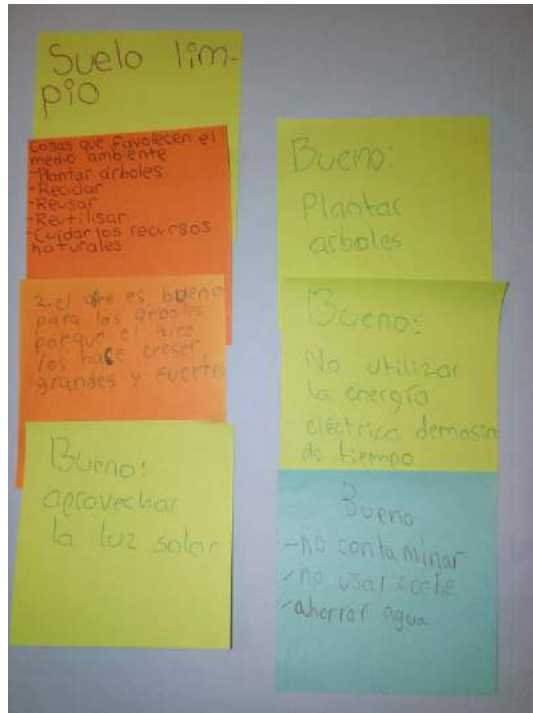 Suelo lim-
pio
Cosas que favolecen el
medio ambiente
-Plantar árboles
-Reciclar
-Reusar
-Reutilisar
-Cuidar los recursos
naturales
2. el aire es bueno
para los árboles
porque el aire
los hace creser
grandes y fuertes
Bueno:
aprovechar
la luz solar
Bueno:
Plantar
arboles
Bueno:
No utilizar
la energía
eléctrica demasia
do tiempo
Bueno
-no contaminar
-no usar coche
-ahorrar agua